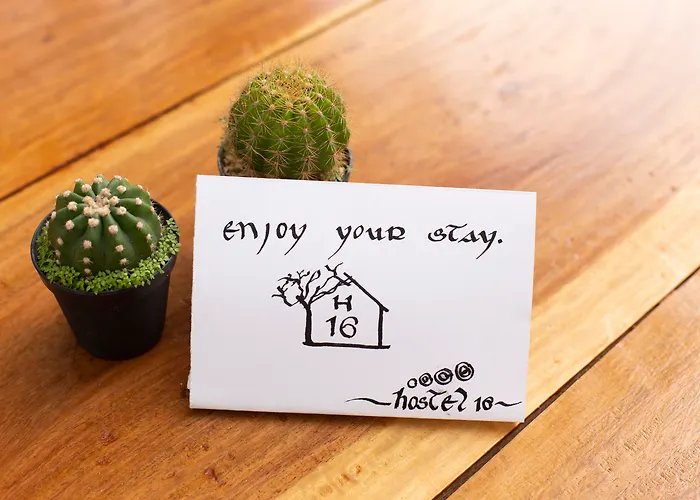 enjoy your stay.
H
16
hostel 16